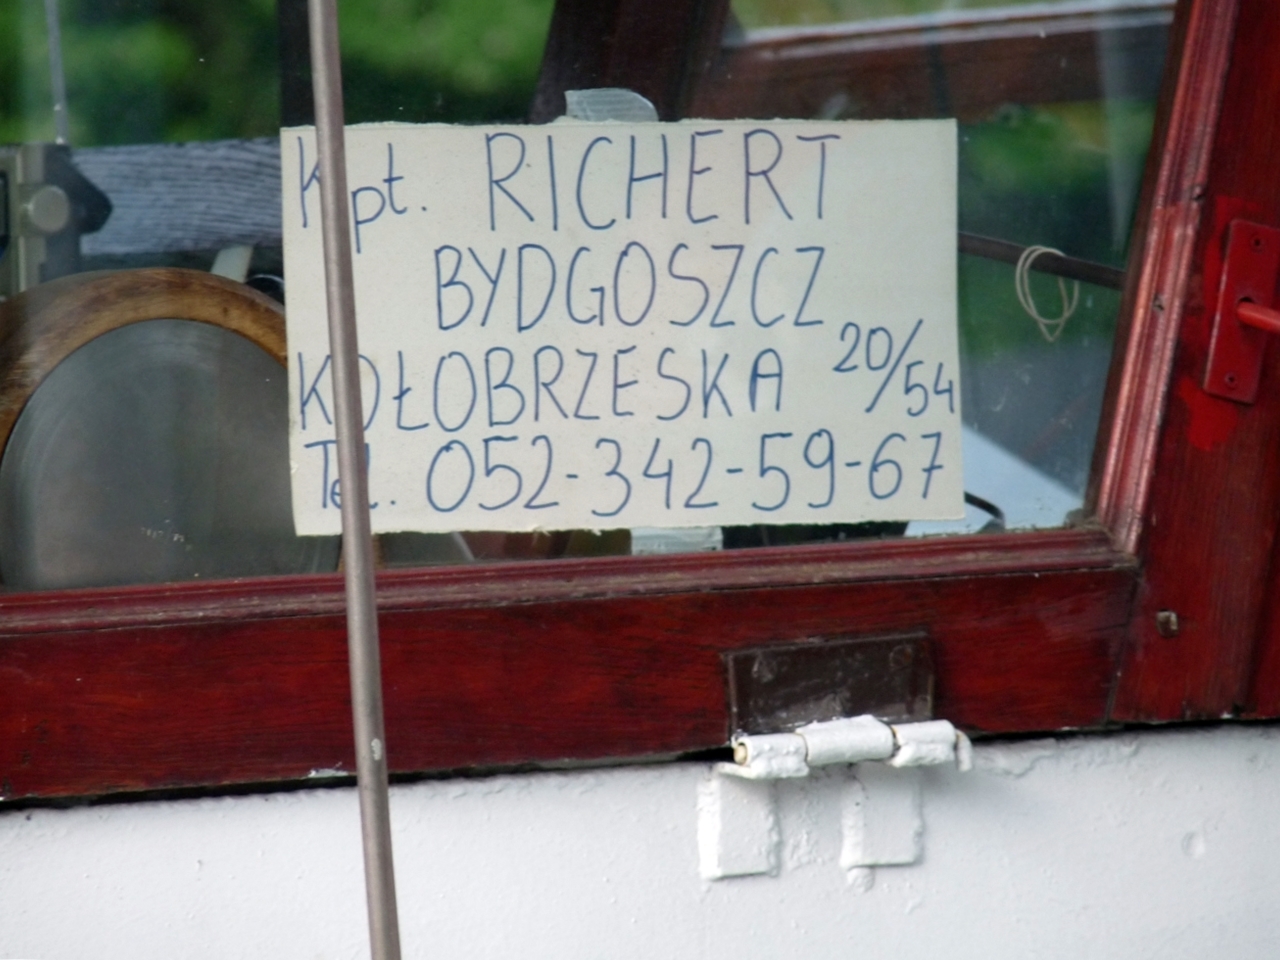 Kpt. RICHERT
BYDGOSZCZ
KOŁOBRZESKA 20/54
Tel. 052-342-59-67